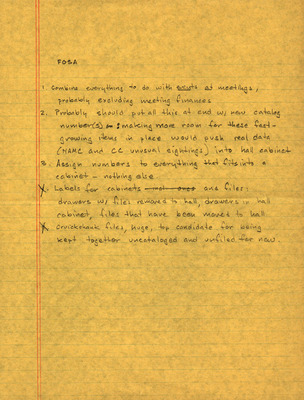 FOSA
1. Combine everything to do with exists at meetings,
probably excluding meeting finances
2. Probably should put all this at end w/ new catalog
number(s) - making more room for these fast-
growing items in place would push real data
(NAMC and CC unusual sightings) into hall cabinet
3. Assign numbers to everything that fits into a
cabinet - nothing else
X. Labels for cabinets and files:
drawers w/ files removed to hall, drawers in hall
cabinet, files that have been moved to hall
X. Cruickshank files, huge, top candidate for being
kept together uncataloged and unfiled for now.